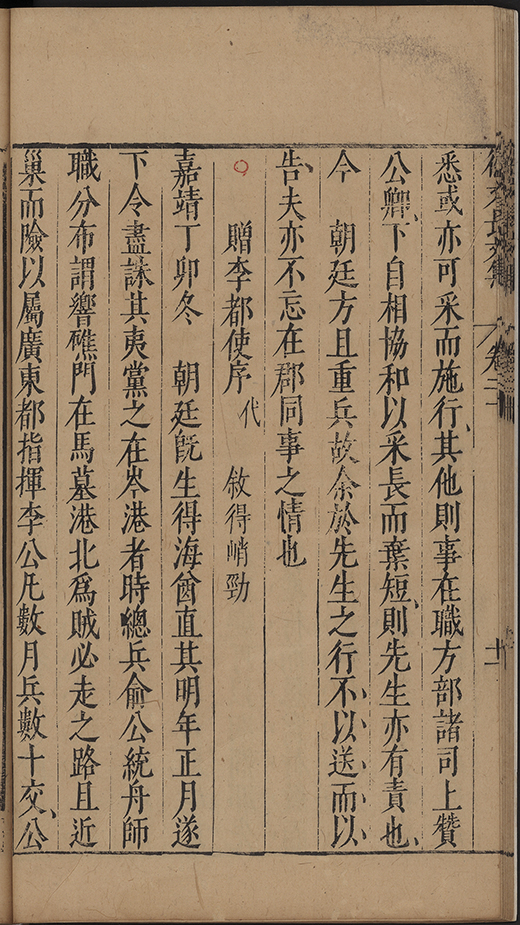 徐文長文集 卷二 十一
悉或亦可采而施行其他則事在職方部諸司上贊
公卿下自相協和以采長而棄短則先生亦有責也
今 朝廷方且重兵故余於先生之行不以送而以
告夫亦不忘在郡同事之情也
○ 贈李都使序 代 敘得峭勁
嘉靖丁卯冬 朝廷旣生得海酋直其明年正月遂
下令盡誅其夷黨之在岑港者時總兵俞公統舟師
職分布謂響礁門在馬墓港北為賊必走之路且近
巢而險以屬廣東都指揮李公凡數月兵數十交公